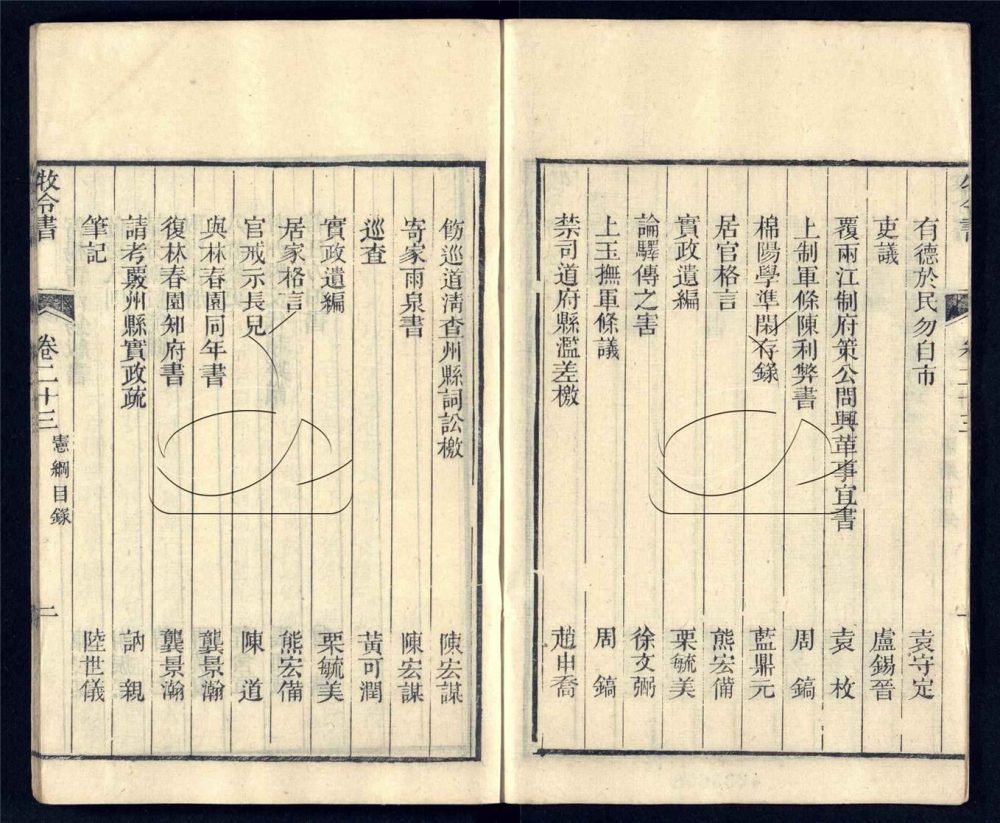 有德於民勿自市 袁守定
吏議 盧錫晉
覆兩江制府策公問興革事宜書 袁枚
上制軍條陳利弊書 周鎬
棉陽學準閑存錄 藍鼎元
居官格言 熊宏備
實政遺編 栗毓美
論驛傳之害 徐文弼
上玉撫軍條議 周鎬
禁司道府縣濫差檄 趙申喬
飭巡道清查州縣詞訟檄 陳宏謀
寄家雨泉書 陳宏謀
巡查 黃可潤
實政遺編 栗毓美
居家格言 熊宏備
官戒示長兒 陳道
與林春園同年書 龔景瀚
復林春園知府書 龔景瀚
請考覈州縣實政疏 訥親
筆記 陸世儀
牧令書 卷二十三 憲綱目錄 二